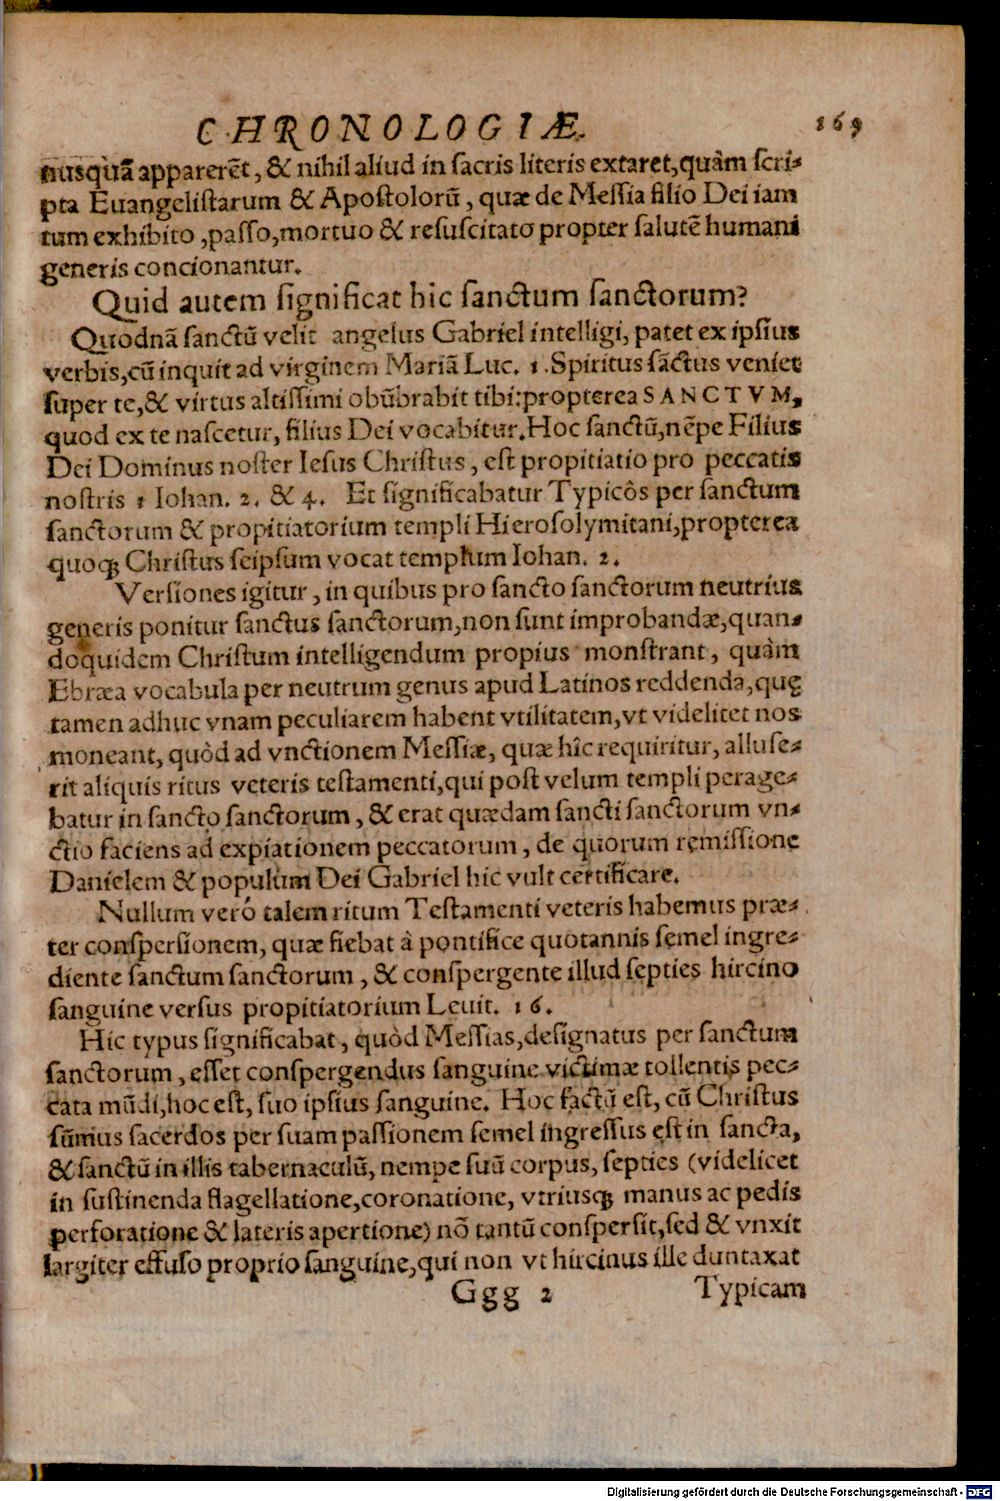 CHRONOLOGIÆ. 169
nusquã apparerẽt, & nihil aliud in sacris literis extaret, quàm scri-
pta Euangelistarum & Apostolorũ, quæ de Messia filio Dei iam
tum exhibito, passo, mortuo & resuscitato propter salutẽ humani
generis concionantur.
Quid autem significat hic sanctum sanctorum?
Quodnã sanctũ velit angelus Gabriel intelligi, patet ex ipsius
verbis, cũ inquit ad virginem Mariã Luc. 1. Spiritus sãctus veniet
super te, & virtus altissimi obũbrabit tibi: propterea SANCTVM,
quod ex te nascetur, filius Dei vocabitur. Hoc sanctũ, nẽpe Filius
Dei Dominus noster Iesus Christus, est propitiatio pro peccatis
nostris 1 Iohan. 2. & 4. Et significabatur Typicôs per sanctum
sanctorum & propitiatorium templi Hierosolymitani, propterea
quoq; Christus seipsum vocat templum Iohan. 2.
Versiones igitur, in quibus pro sancto sanctorum neutrius
generis ponitur sanctus sanctorum, non sunt improbandæ, quan-
doquidem Christum intelligendum propius monstrant, quàm
Ebræa vocabula per neutrum genus apud Latinos reddenda, quę
tamen adhuc vnam peculiarem habent vtilitatem, vt videlitet nos
moneant, quòd ad vnctionem Messiæ, quæ hîc requiritur, alluse-
rit aliquis ritus veteris testamenti, qui post velum templi perage-
batur in sancto sanctorum, & erat quædam sancti sanctorum vn-
ctio faciens ad expiationem peccatorum, de quorum remissione
Danielem & populum Dei Gabriel hic vult certificare.
Nullum verò talem ritum Testamenti veteris habemus præ-
ter conspersionem, quæ fiebat à pontifice quotannis semel ingre-
diente sanctum sanctorum, & conspergente illud septies hircino
sanguine versus propitiatorium Leuit. 16.
Hic typus significabat, quòd Messias, designatus per sanctum
sanctorum, esset conspergendus sanguine victimæ tollentis pec-
cata mũdi, hoc est, suo ipsius sanguine. Hoc factũ est, cũ Christus
sũmus sacerdos per suam passionem semel ingressus est in sancta,
& sanctũ in illis tabernaculũ, nempe suũ corpus, septies (videlicet
in sustinenda flagellatione, coronatione, vtriusq; manus ac pedis
perforatione & lateris apertione) nõ tantũ conspersit, sed & vnxit
largiter effuso proprio sanguine, qui non vt hircinus ille duntaxat
Ggg 2 Typicam
Digitalisierung gefördert durch die Deutsche Forschungsgemeinschaft - DFG